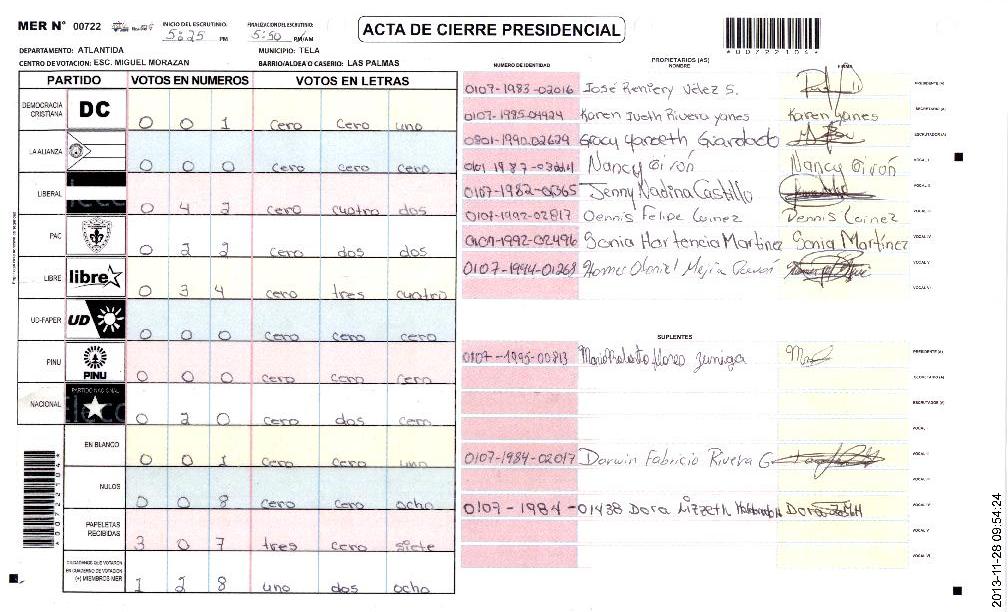 MER N° 00722
INICIO DEL ESCRUTINIO: 5:25 PM
FINALIZACION DEL ESCRUTINIO: 5:50 PM/AM
ACTA DE CIERRE PRESIDENCIAL
DEPARTAMENTO: ATLANTIDA
MUNICIPIO: TELA
CENTRO DE VOTACION: ESC. MIGUEL MORAZAN
BARRIO/ALDEA O CASERIO: LAS PALMAS
PARTIDO VOTOS EN NUMEROS VOTOS EN LETRAS
DEMOCRACIA CRISTIANA DC 0 0 1 cero cero uno
LA ALIANZA 0 0 0 cero cero cero
LIBERAL 0 4 2 cero cuatro dos
PAC 0 2 2 cero dos dos
LIBRE libre 0 3 4 cero tres cuatro
UD-FAPER UD 0 0 0 cero cero cero
PINU PINU 0 0 0 cero cero cero
NACIONAL PARTIDO NACIONAL 0 2 0 cero dos cero
EN BLANCO 0 0 1 cero cero uno
NULOS 0 0 8 cero cero ocho
PAPELETAS RECIBIDAS 3 0 7 tres cero siete
CIUDADANOS QUE VOTARON EN CUADERNO DE VOTACION (+) MIEMBROS MER 1 2 8 uno dos ocho
*00722104*
PROPIETARIOS (AS)
NUMERO DE IDENTIDAD NOMBRE FIRMA
0107-1983-02016 José Reniery Vélez S. PRESIDENTE (A)
0107-1995-04924 Karen Iveth Rivera yanes Karen Yanes SECRETARIO (A)
0801-1990-02629 ESCRUTADOR (A)
Nancy Girón Nancy Girón VOCAL I
0107-1982-01365 Jenny Nadina Castillo VOCAL II
0107-1992-02817 Dennis Felipe Lainez Dennis Lainez VOCAL III
1992-02496 Sonia Hortencia Martinez Sonia Martínez VOCAL IV
0107-1994-01268 Mejia VOCAL V
VOCAL VI
SUPLENTES
0107-1995-00813 Mario Roberto flores zuniga PRESIDENTE (A)
SECRETARIO (A)
ESCRUTADOR (A)
VOCAL I
0107-1984-02017 Darwin Fabricio Rivera G VOCAL II
VOCAL III
0107-1984-01438 Dora Lizzeth Dora VOCAL IV
VOCAL V
VOCAL VI
*00722104*
2013-11-28 09:54:24